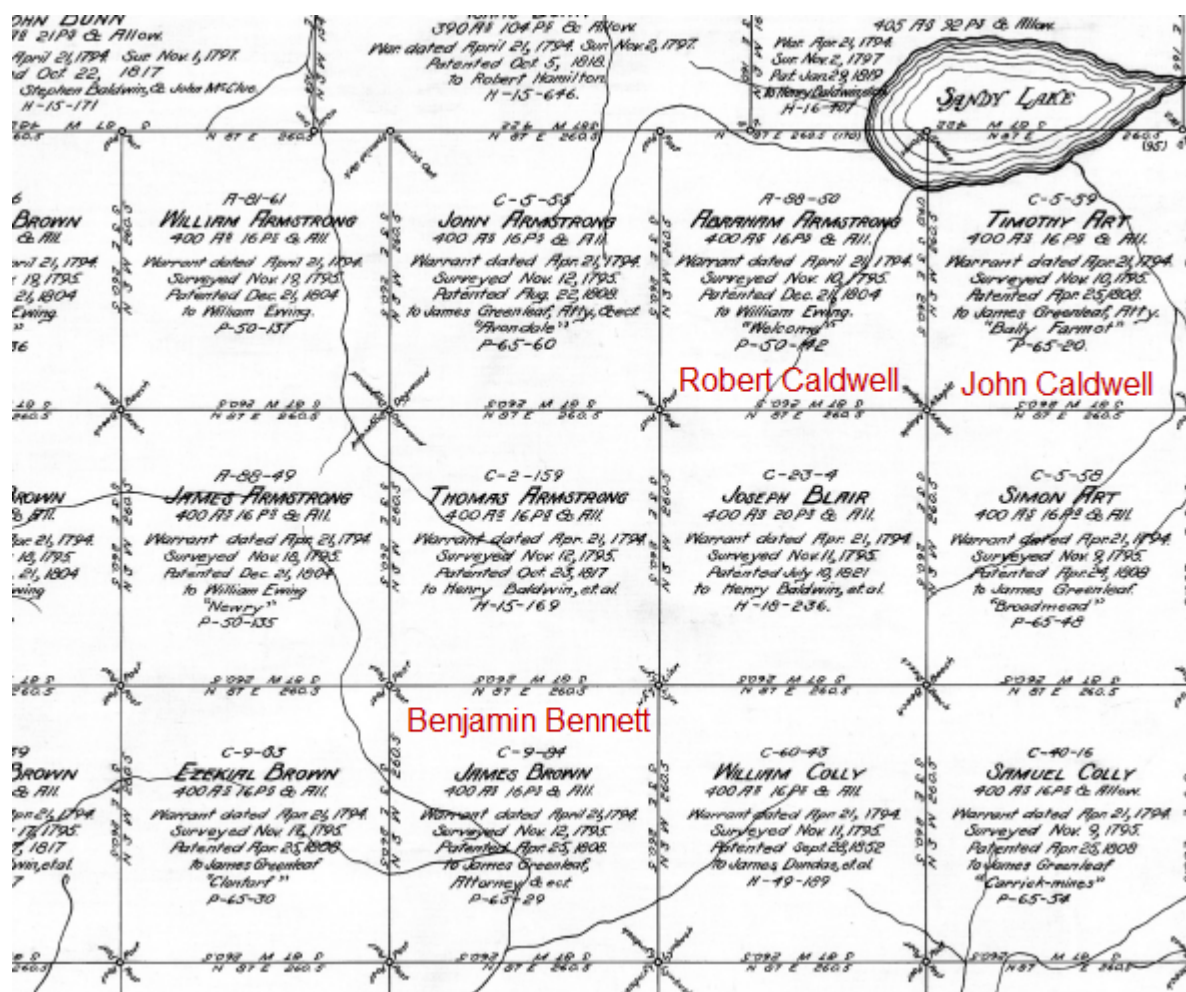 JOHN DUNN
21 Ps & Allow.
April 21, 1794. Sur. Nov. 1, 1797.
Oct. 22, 1817
Stephen Baldwin, & John McClue.
H-15-171
390 As 104 Ps & Allow.
War. dated April 21, 1794. Sur. Nov. 2, 1797.
Patented Oct. 5, 1818.
to Robert Hamilton.
H-15-646.
405 As 92 Ps & Allow.
War. Apr. 21, 1794.
Sur. Nov. 2, 1797
Pat. Jan. 29, 1819
to Henry Baldwin
H-16-407
SANDY LAKE
S 87 W 422
N 87 E 260.5
N 87 E 260.5 (110)
S 87 W 422
N 87 E
260.5
(95)
BROWN
& All.
April 21, 1794.
19, 1795.
21, 1804
Ewing.
36
A-81-61
WILLIAM ARMSTRONG
400 As 16 Ps & All.
Warrant dated April 21, 1794.
Surveyed Nov. 19, 1795.
Patented Dec. 21, 1804
to William Ewing.
P-50-137
C-5-55
JOHN ARMSTRONG
400 As 16 Ps & All.
Warrant dated Apr. 21, 1794
Surveyed Nov. 12, 1795.
Patented Aug. 22, 1808.
to James Greenleaf, Atty, &ect.
"Avondale"
P-65-60
A-88-50
ABRAHAM ARMSTRONG
400 As 16 Ps & All.
Warrant dated April 21, 1794.
Surveyed Nov. 10, 1795.
Patented Dec. 21, 1804
to William Ewing.
"Welcome"
P-50-142
Robert Caldwell
C-5-59
TIMOTHY ART
400 As 16 Ps & All.
Warrant dated Apr. 21, 1794.
Surveyed Nov. 10, 1795.
Patented Apr. 25, 1808.
to James Greenleaf, Atty.
"Bally Farmot"
P-65-20.
John Caldwell
S 87 W 260.5
N 87 E 260.5
S 87 W 260.5
N 87 E 260.5
S 87 W 260.5
N 87 E 260.5
S 87 W 260.5
N 87 E 260.5
BROWN
& All.
Apr. 21, 1794.
18, 1795
21, 1804
Ewing
A-88-49
JAMES ARMSTRONG
400 As 16 Ps & All.
Warrant dated Apr. 21, 1794.
Surveyed Nov. 18, 1795.
Patented Dec. 21, 1804
to William Ewing
"Newry"
P-50-135
C-2-159
THOMAS ARMSTRONG
400 As 16 Ps & All.
Warrant dated Apr. 21, 1794
Surveyed Nov. 12, 1795.
Patented Oct. 23, 1817
to Henry Baldwin, et al.
H-15-169
C-23-4
JOSEPH BLAIR
400 As 20 Ps & All.
Warrant dated Apr. 21, 1794.
Surveyed Nov. 11, 1795.
Patented July 10, 1821
to Henry Baldwin, et al.
H-18-236.
C-5-58
SIMON ART
400 As 16 Ps & All.
Warrant dated Apr. 21, 1794.
Surveyed Nov. 9, 1795
Patented Apr. 24, 1808
to James Greenleaf.
"Broadmead"
P-65-48
S 87 W 260.5
N 87 E 260.5
S 87 W 260.5
N 87 E 260.5
S 87 W 260.5
N 87 E 260.5
S 87 W 260.5
N 87 E 260.5
Benjamin Bennett
BROWN
& All.
Apr. 21, 1794.
17, 1795.
1817
7
C-9-83
EZEKIAL BROWN
400 As 16 Ps & All.
Warrant dated Apr. 21, 1794.
Surveyed Nov. 18, 1795.
Patented Apr. 25, 1808
to James Greenleaf
"Clontarf"
P-65-30
C-9-84
JAMES BROWN
400 As 16 Ps & All.
Warrant dated April 21, 1794.
Surveyed Nov. 12, 1795.
Patented Apr. 25, 1808.
to James Greenleaf,
Attorney & ect
P-65-29
C-60-43
WILLIAM COLLY
400 As 16 Ps & All
Warrant dated Apr. 21, 1794.
Surveyed Nov. 11, 1795.
Patented Sept. 28, 1852
to James Dundas, et al
H-49-189
C-40-16
SAMUEL COLLY
400 As 16 Ps & Allow.
Warrant dated Apr. 21, 1794.
Surveyed Nov. 9, 1795.
Patented Apr. 25, 1808
to James Greenleaf
"Carrick-mines"
P-65-54
S 87 W 260.5
N 87 E 260.5
S 87 W 260.5
N 87 E 260.5
S 87 W 260.5
N 87 E 260.5
S 87 W 260.5
N 87 E 260.5